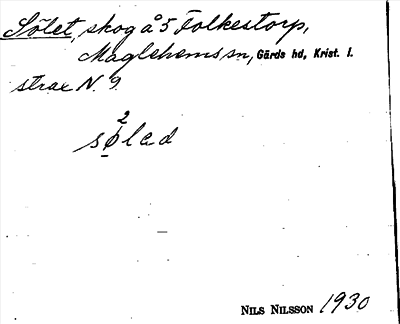 Sölet, skog å 5 Folkestorp,
Maglehems sn, Gärds hd, Krist. l.
strax N. 9.
2
sølad
NILS NILSSON 1930